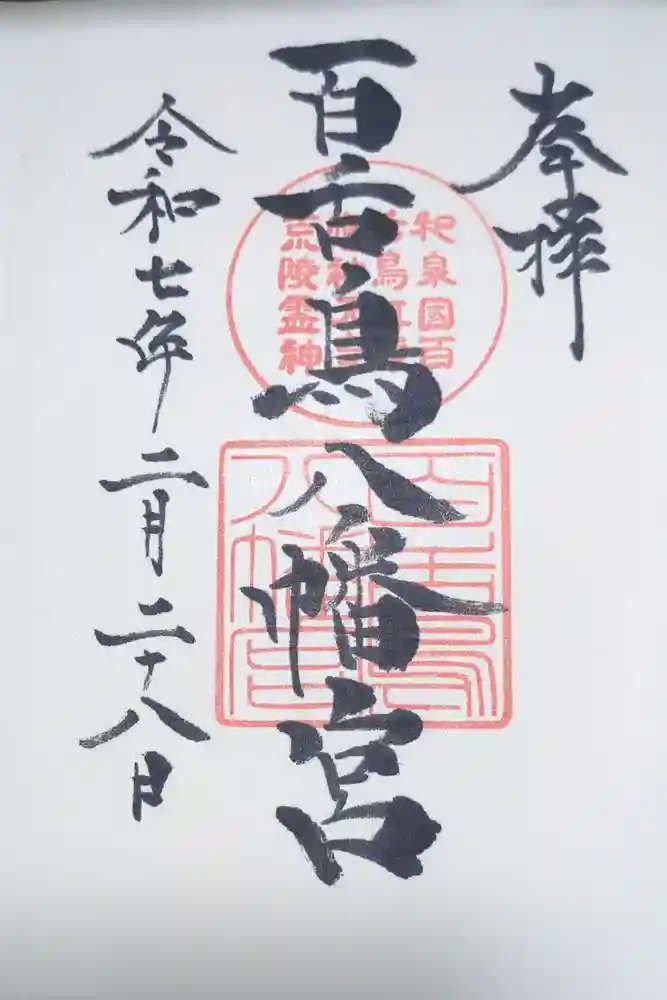 奉拝
百舌鳥八幡宮
和泉國百
京陵霊神
百舌鳥
八幡宮
令和七年二月二十八日